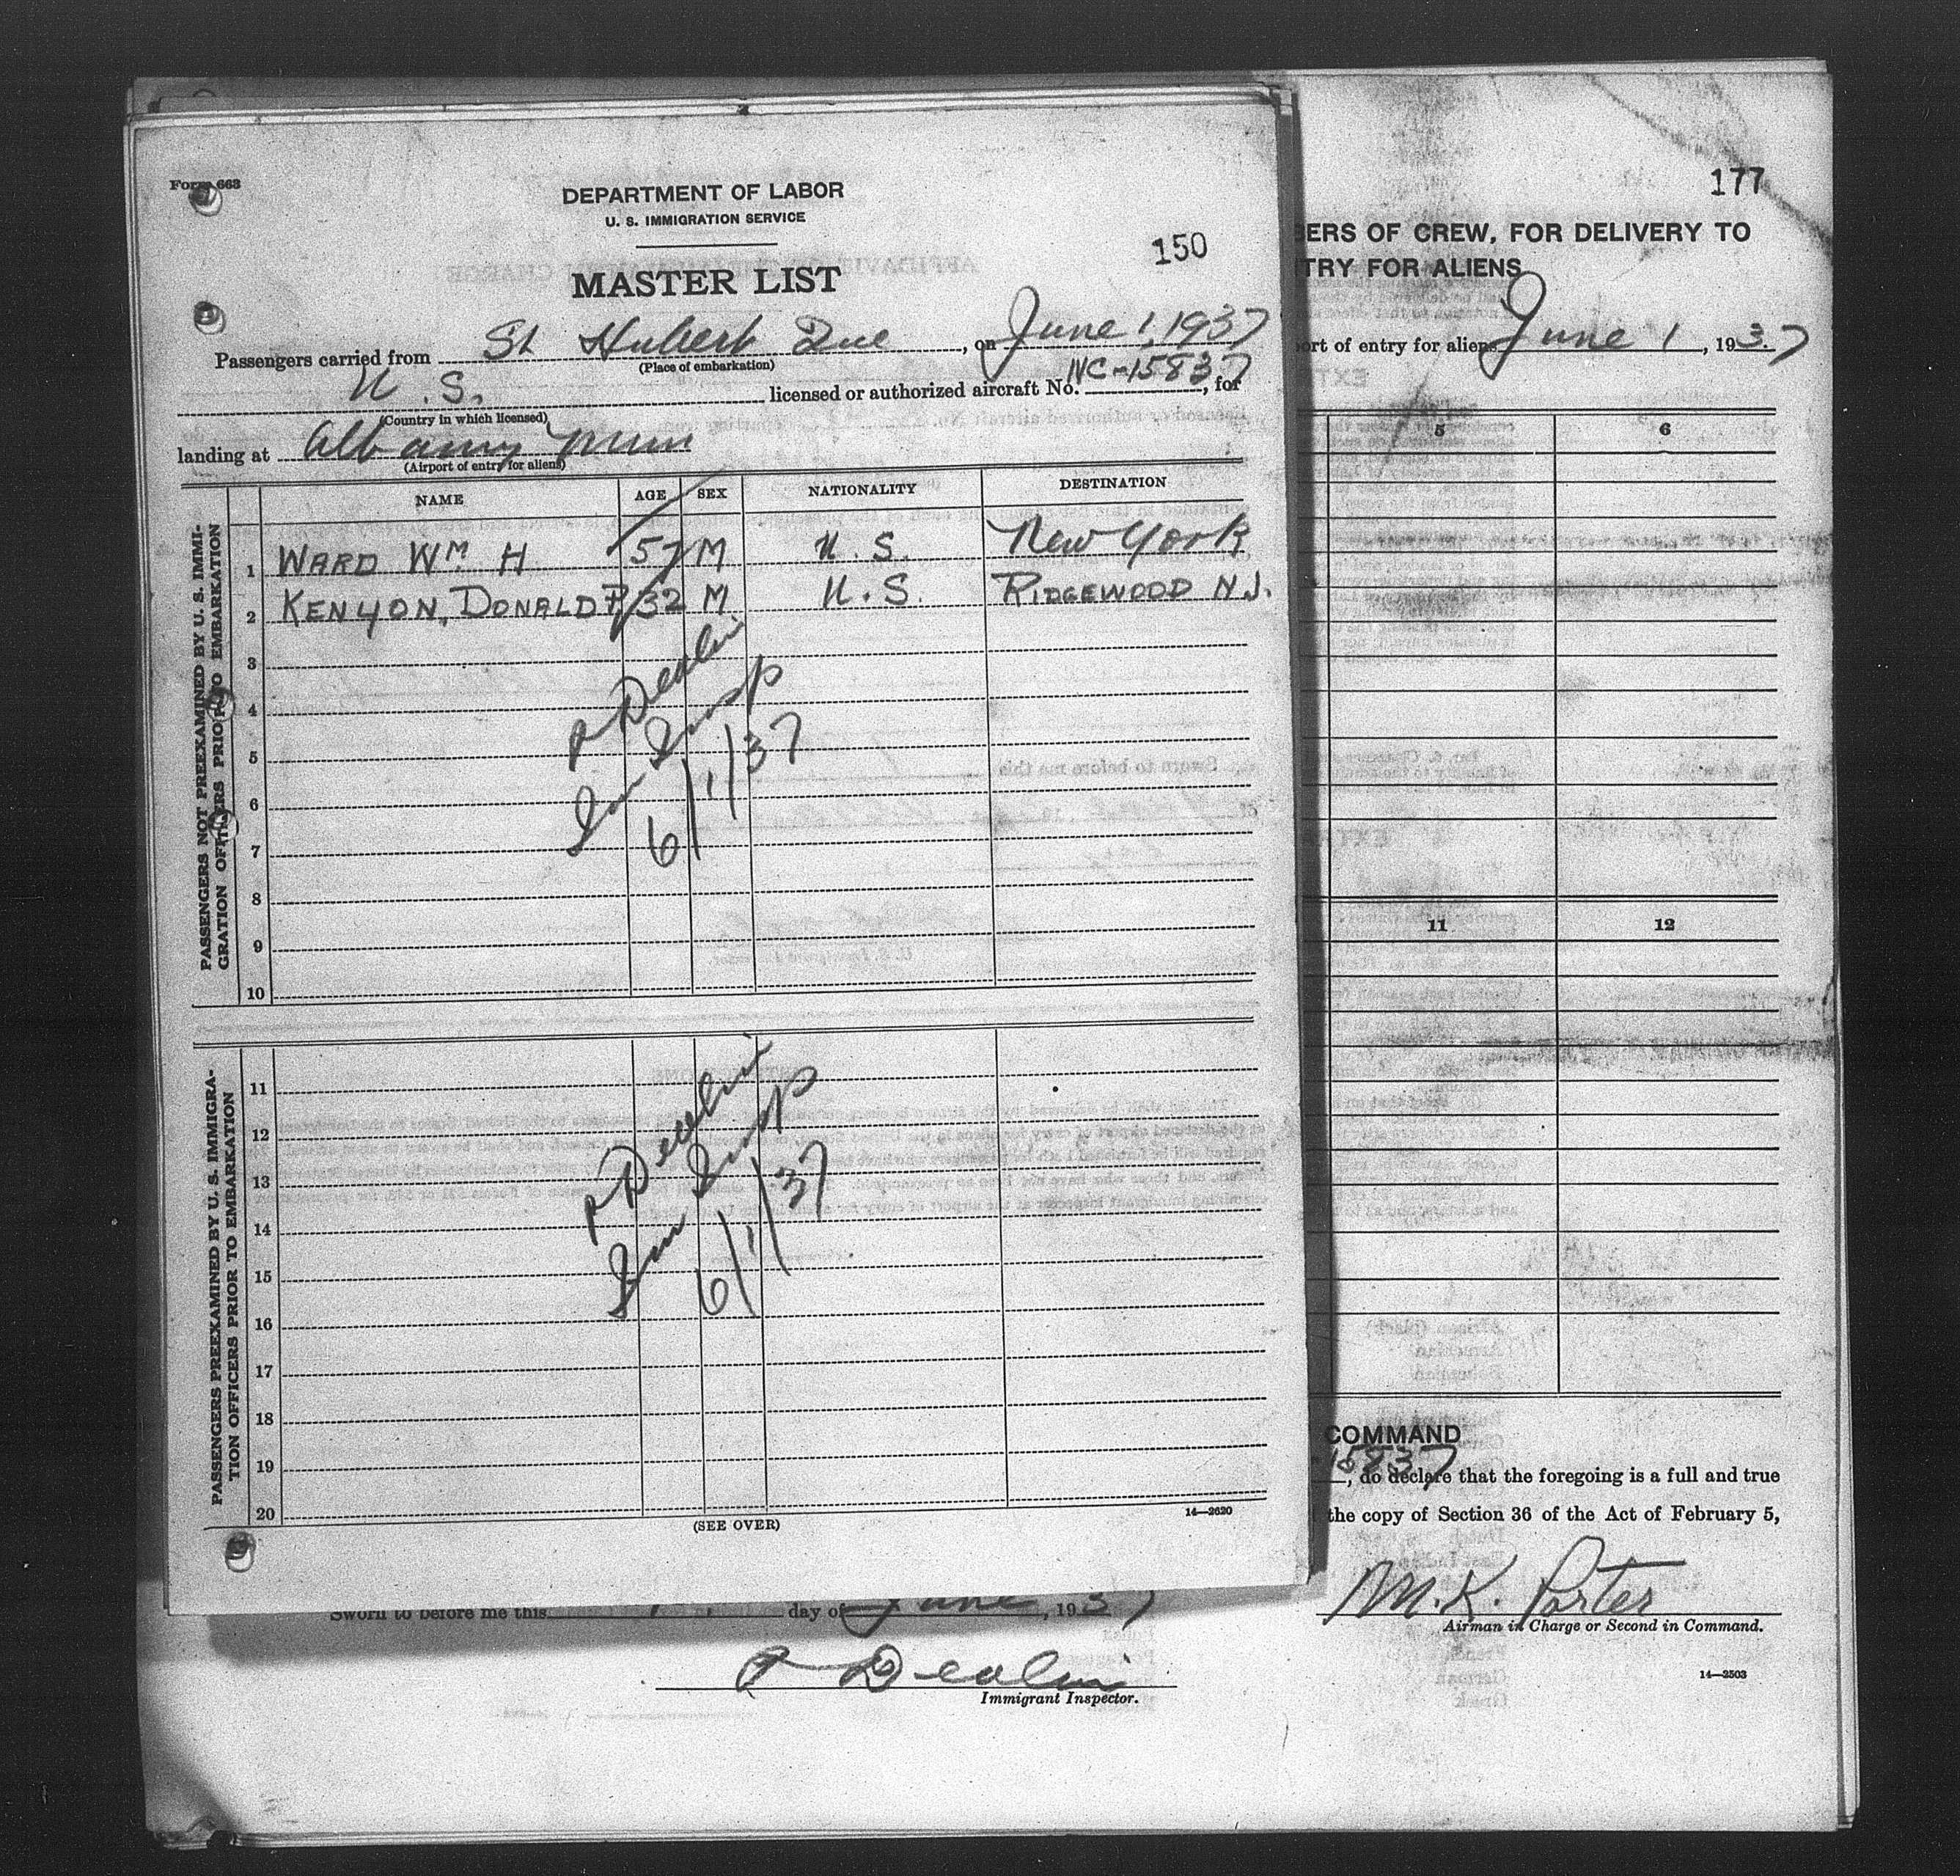 Form 663
DEPARTMENT OF LABOR
U. S. IMMIGRATION SERVICE
150
MASTER LIST
Passengers carried from St Hubert Que, on June 1, 1937
(Place of embarkation)
U. S. licensed or authorized aircraft No. NC-15837, for
(Country in which licensed)
landing at Albany
(Airport of entry for aliens)
NAME AGE SEX NATIONALITY DESTINATION
PASSENGERS NOT PREEXAMINED BY U. S. IMMI-
GRATION OFFICERS PRIOR TO EMBARKATION
1 WARD WM H 57 M U. S. New York
2 KENYON, DONALD P. 32 M U. S. RIDGEWOOD N J.
3
4
5
6
7
8
9
10
Devlin
Imm Insp
6/1/37
PASSENGERS PREEXAMINED BY U. S. IMMIGRA-
TION OFFICERS PRIOR TO EMBARKATION
11
12
13
14
15
16
17
18
19
20
Devlin
Imm Insp
6/1/37
(SEE OVER)
14—2620
177
BERS OF CREW, FOR DELIVERY TO
TRY FOR ALIENS
port of entry for aliens June 1, 1937
5 6
11 12
COMMAND
15837, do declare that the foregoing is a full and true
the copy of Section 36 of the Act of February 5,
M. K. Porter
Airman in Charge or Second in Command.
14—2503
Sworn to before me this 1 day of June, 1937
Devlin
Immigrant Inspector.